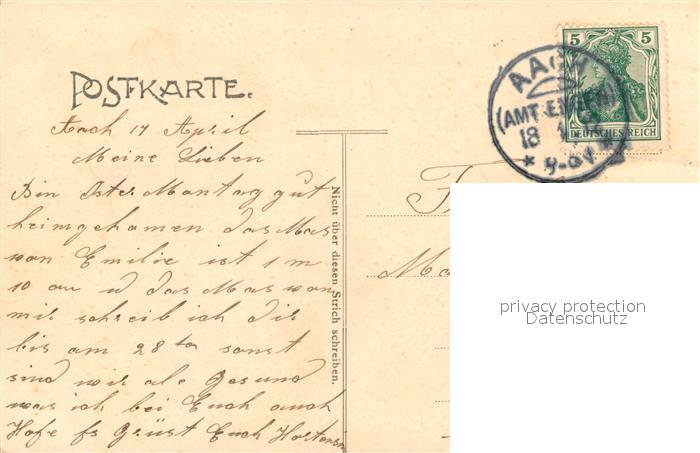 POSTKARTE.
Aach 17 April
Meine Lieben
Bin Oster Montag gut
heimgekamen das Mas
von Emilie ist 1 m
10 cm u das Mas von
mir schreib ich dir
bis am 28ten sonst
sind wir ale Gesund
was ich bei Euch auch
Hofe es Grüst Euch
Nicht über diesen Strich schreiben.
5 5
DEUTSCHES REICH
AACH
(AMT ENGEN)
18
8-9V
privacy protection
Datenschutz